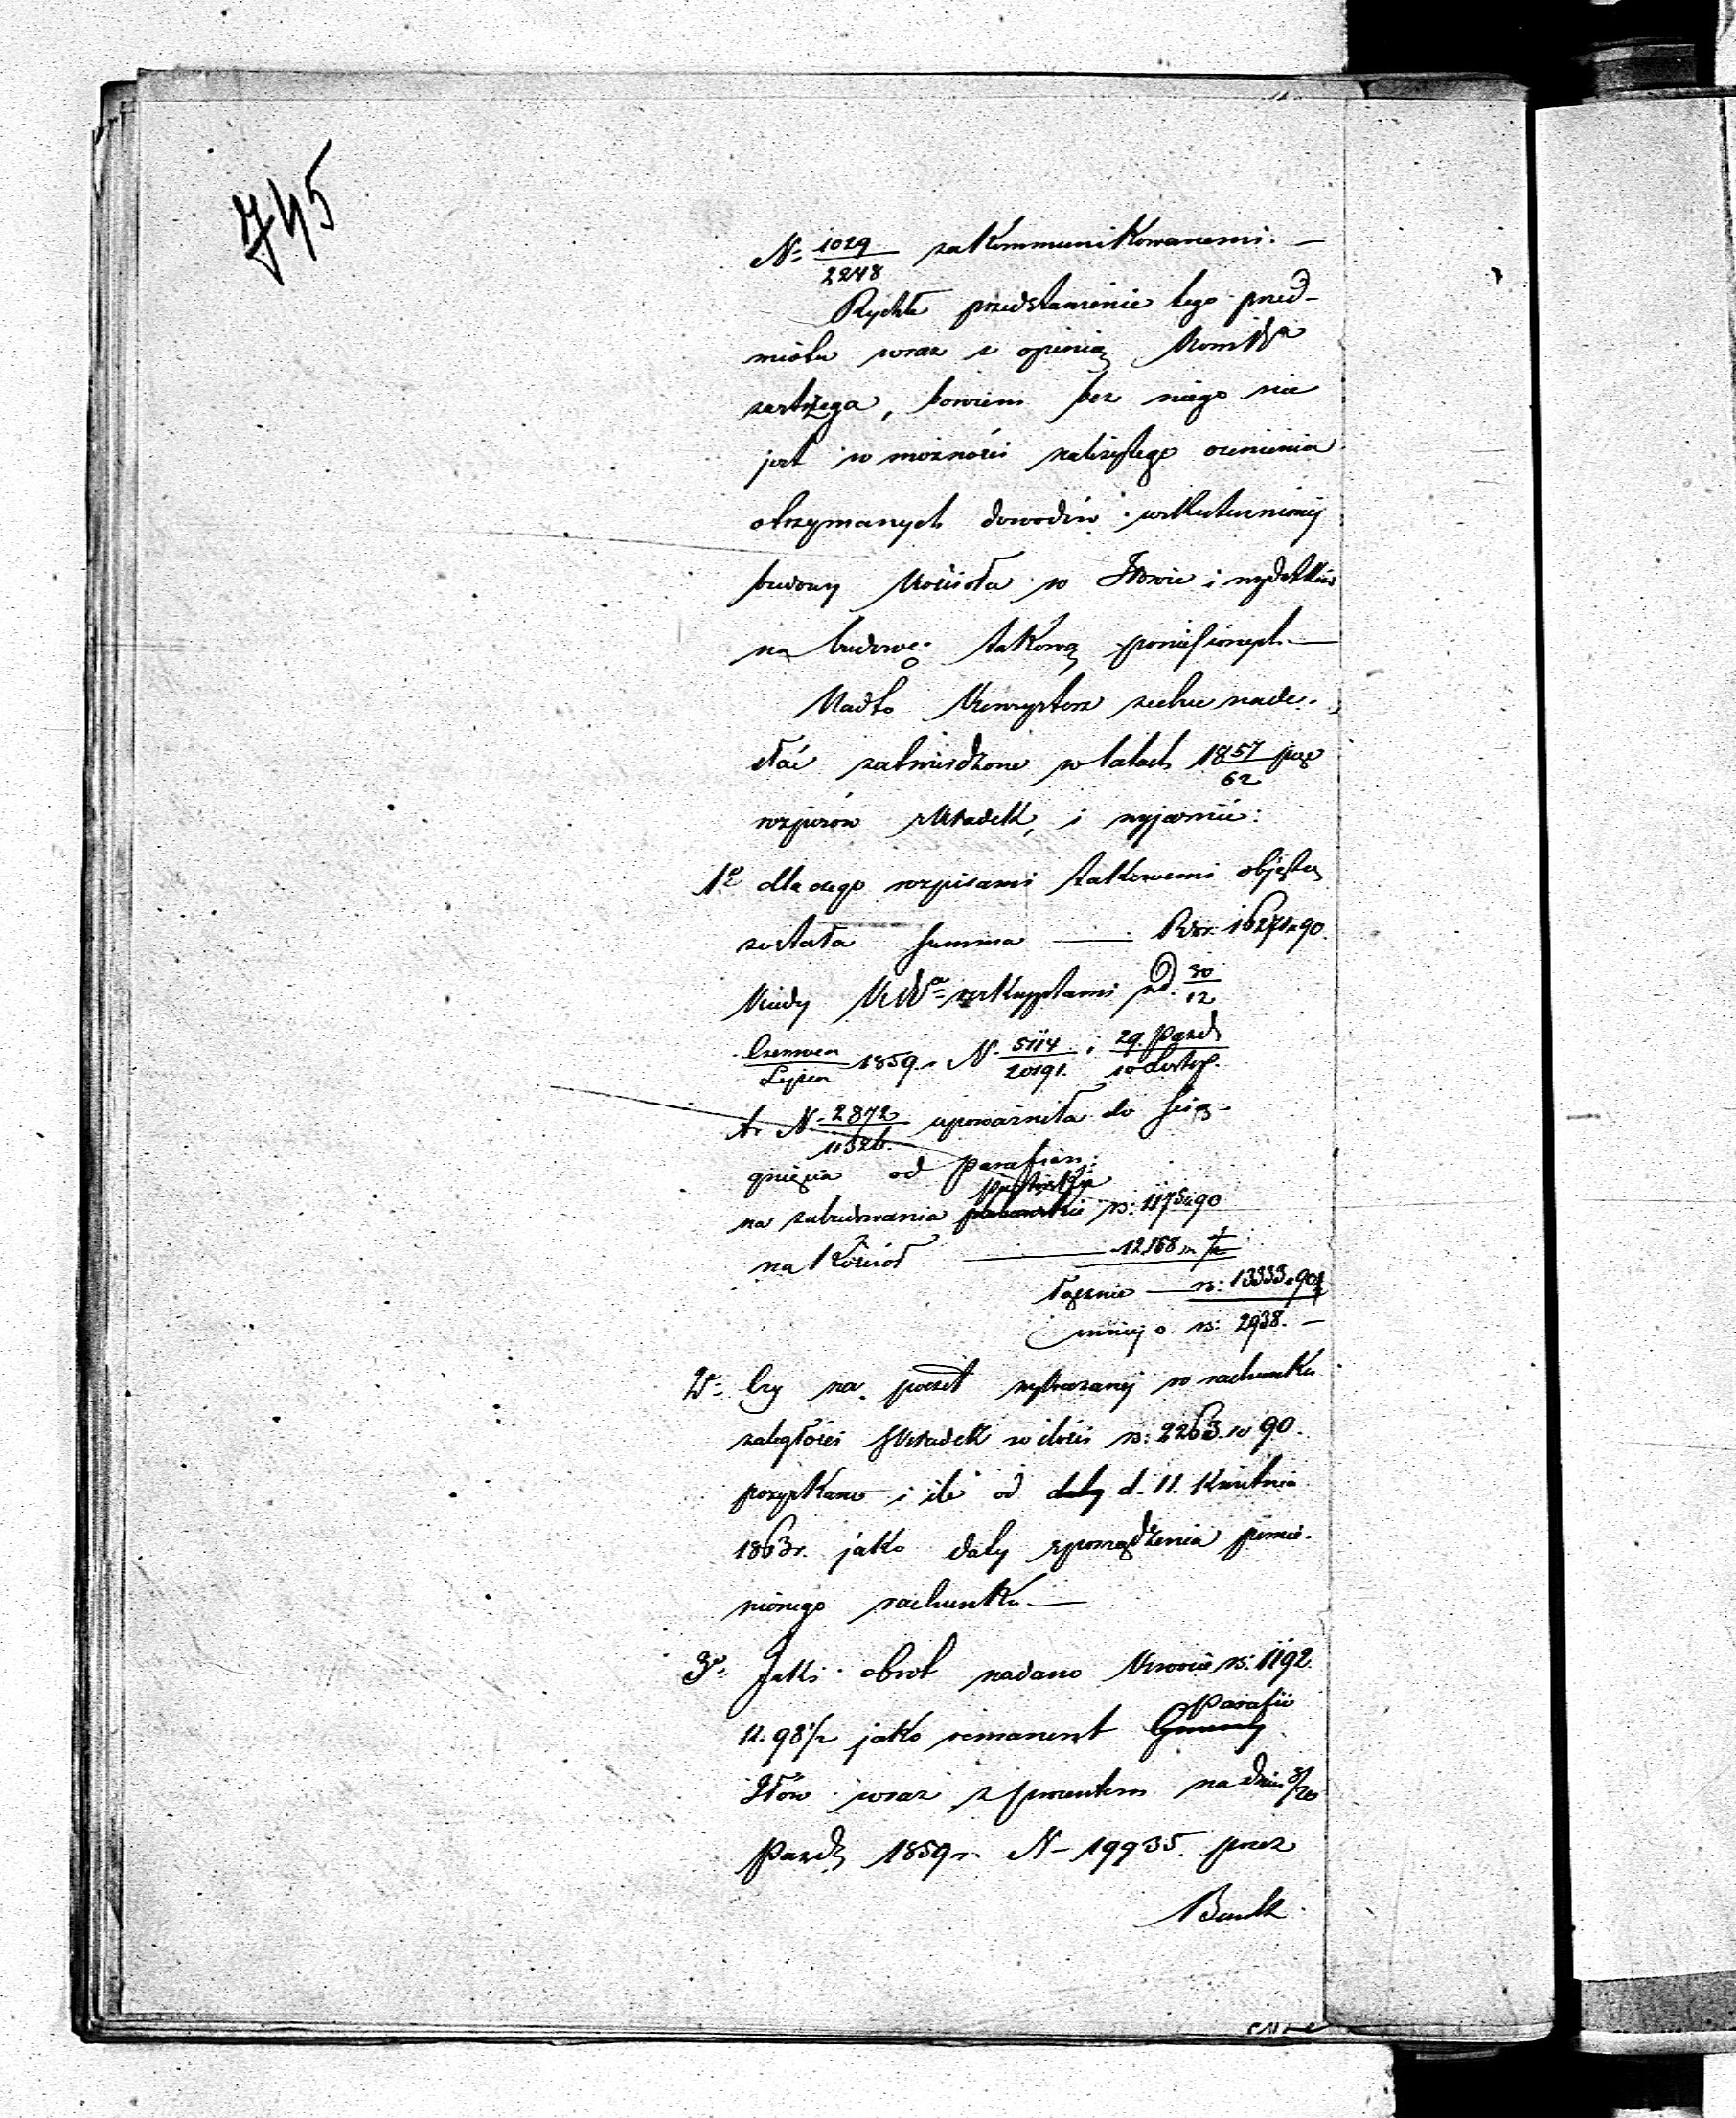 745
N. 1029/2248 zakommunikowanemi. —
Rychłe przedstawienie tego przed-
miotu wraz z opinią
zastrzega, bowiem bez niego nie
jest w możności należytego ocenienia
otrzymanych dowodów uskutecznionej
budowy Kościoła w Iłowie i wydatków
na budowę takową poniesionych. —
Nadto Konsystorz zechce nade-
słać zatwierdzone w latach 1857/62 przez
rozpisów składek, i wyjaśnić:
1e dla czego rozpisami takowemi objęta
została summa — Rsr. 16271 „ 90.
Kiedy reskryptami pod d. 30/12
Czerwca/Lipca 1859 r. N. 5114/20191. i 29. Paźd/10 Listop.
t. r. N. 2872/11326. upoważniła do ścią-
gnięcia od parafian:
na zabudowania rs: 1175 „ 90
na Kościół — 12,158 „
łącznie — rs: 13333 „ 90
mniej o rs: 2938. —
2e Czy na poczet wykazanej w rachunku
zaległości składek w ilości rs: 2263 „ 90.
pozyskano i ile od daty d. 11. Kwietnia
1863 r. jako daty sporządzenia pomie-
nionego rachunku —
3e Jaki obrót nadano kwocie rs: 1192.
k. 98½ jako remanent Parafii Gminy
Iłów wraz z procentem na dniu 8/20
Paźdz 1859 r. N – 19935. przez
Bank.